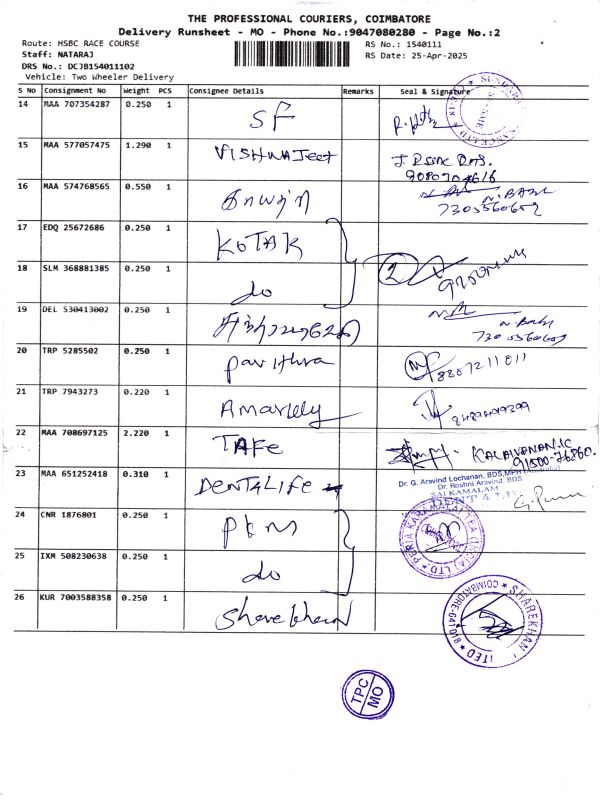 THE PROFESSIONAL COURIERS, COIMBATORE
Delivery Runsheet - MO - Phone No.:9047080280 - Page No.:2
Route: HSBC RACE COURSE
RS No.: 1540111
Staff: NATARAJ
RS Date: 25-Apr-2025
DRS No.: DCJB154011102
Vehicle: Two Wheeler Delivery
S No Consignment No Weight PCS Consignee Details Remarks Seal & Signature
14 MAA 707354287 0.250 1 SF
15 MAA 577057475 1.290 1 VISHWAJeet
9080704616
16 MAA 574768565 0.550 1
N. BABU
7305560609
17 EDQ 25672686 0.250 1 KOTAK
18 SLM 368881385 0.250 1 do 2
19 DEL 530413002 0.250 1
N. Babu
7305560609
20 TRP 5285502 0.250 1 pavithra 8807211011
21 TRP 7943273 0.220 1
22 MAA 708697125 2.220 1 TAFE KALAIVANAN.K
91500-76860.
23 MAA 651252418 0.310 1 DENTALIFE
Dr. G. Aravind Lochanan, BDS,MPH
Dr. Roshni Aravind. BDS
SAI KAMALAM
24 CNR 1876801 0.250 1
PERIA KARAMALAI TEA (INDIA) LTD
25 IXM 508230638 0.250 1 do
26 KUR 7003588358 0.250 1 Sharekhan
SHAREKHAN LIMITED COIMBATORE
TPC
MO